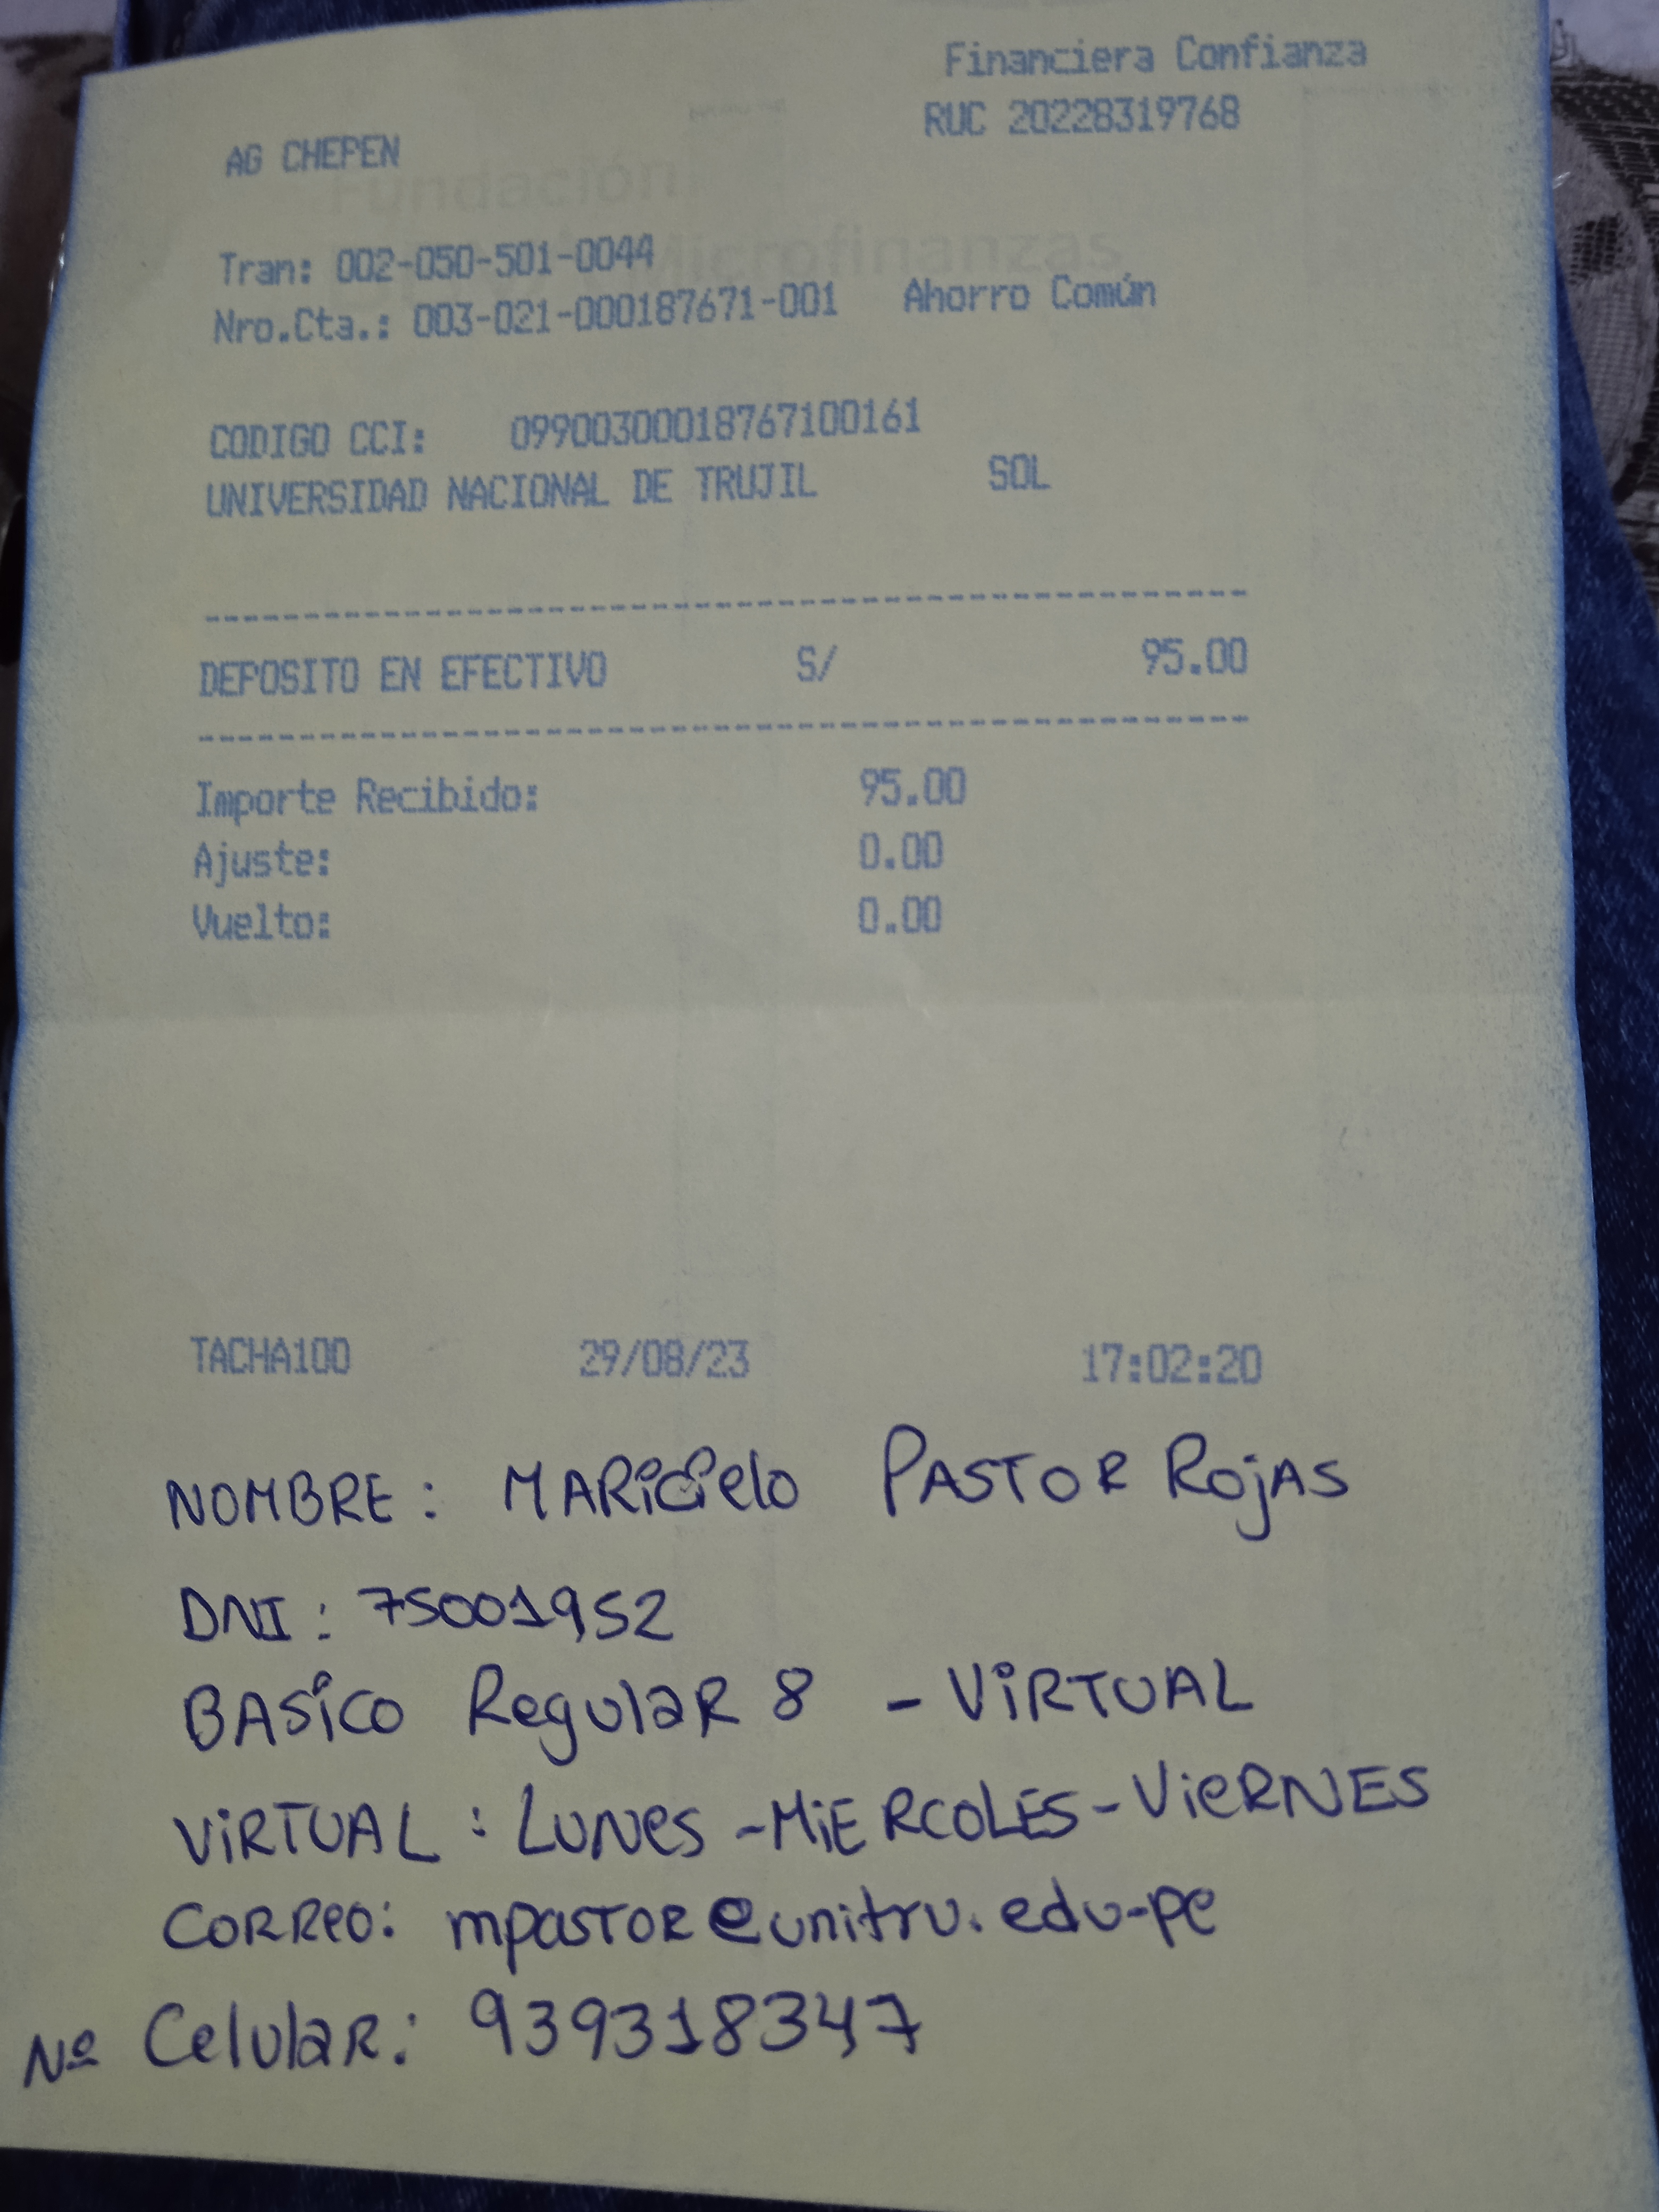 Financiera Confianza
RUC 20228319768
AG CHEPEN
Fundación
Microfinanzas
Tran: 002-050-501-0044
Nro.Cta.: 003-021-000187671-001 Ahorro Común
CODIGO CCI: 09900300018767100161
UNIVERSIDAD NACIONAL DE TRUJIL SOL
DEPOSITO EN EFECTIVO S/ 95.00
Importe Recibido: 95.00
Ajuste: 0.00
Vuelto: 0.00
TACHA100 29/08/23 17:02:20
NOMBRE: MARiCielo PASTOR ROjAS
DNI: 75001952
BASiCO RegulaR 8 - ViRTUAL
ViRTUAL: LUNes - MiERCOLES - VieRNES
CORReo: mpastor@unitru.edu-pe
Nº CelulaR: 939318347